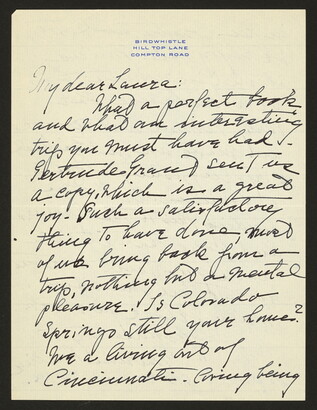 BIRDWHISTLE
HILL TOP LANE
COMPTON ROAD
My dear Laura:
What a perfect book
and what an interesting
trip you must have had -
Gertrude Grand sent us
a copy, which is a great
joy - Such a satisfactory
thing to have done, most
of us bring back from a
trip, nothing but a mental
pleasure. Is Colorado
Springs still your home?
We a living out of
Cincinnati - Irving being